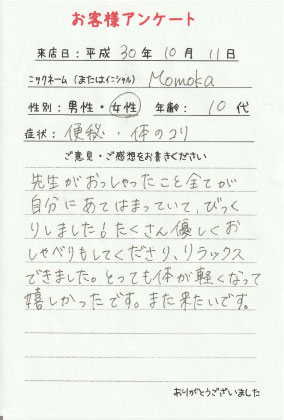 お客様アンケート
来店日：平成 30年 10月 11日
ニックネーム（またはイニシャル） Momoka
性別：男性・女性 年齢： 10代
症状： 便秘・体のコリ
ご意見・ご感想をお書きください
先生がおっしゃったこと全てが
自分にあてはまっていて、びっく
りしました！たくさん優しくお
しゃべりもしてくださり、リラックス
できました。とっても体が軽くなって
嬉しかったです。また来たいです。
ありがとうございました